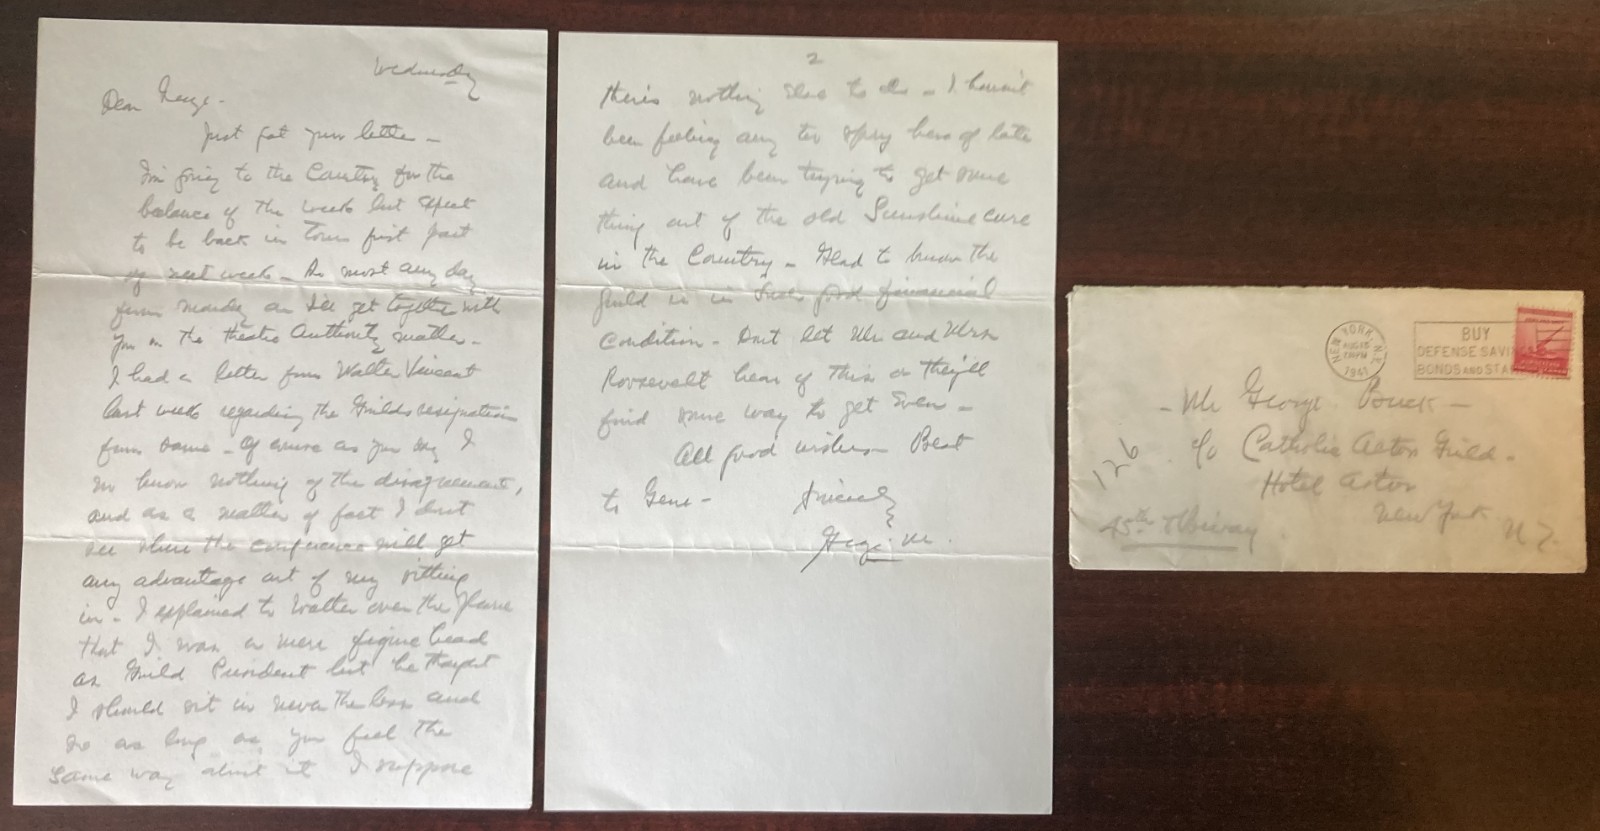 Wednesday
Dear George.
Just got your letter –
I'm going to the Country for the
balance of the week but expect
to be back in Town first part
of next week – So most any day
from Monday on I'll get together with
you on the Theatre Authority matter –
I had a letter from Walter Vincent
last week regarding the Guilds resignation
from same – Of course as you say I
know nothing of the disagreement,
and as a matter of fact I don't
see where the conference will get
any advantage out of my sitting
in – I explained to Walter over the phone
that I was a mere figure head
as Guild President but he thought
I should sit in never the less and
so as long as you feel the
same way about it I suppose
2
there's nothing else to do – I haven't
been feeling any too spry here of late
and have been trying to get some
thing out of the old Sunshine cure
in the Country – Glad to know the
Guild is in such good financial
Condition – Don't let Mr and Mrs
Roosevelt hear of this or they'll
find some way to get even –
All good wishes – Best
to Gene – Sincerely
George M.
NEW YORK, N.Y.
AUG
1941
BUY
DEFENSE SAVINGS
BONDS AND STA
– Mr George Buck –
c/o Catholic Actors Guild –
Hotel Astor
New York N.Y.
126
45th &